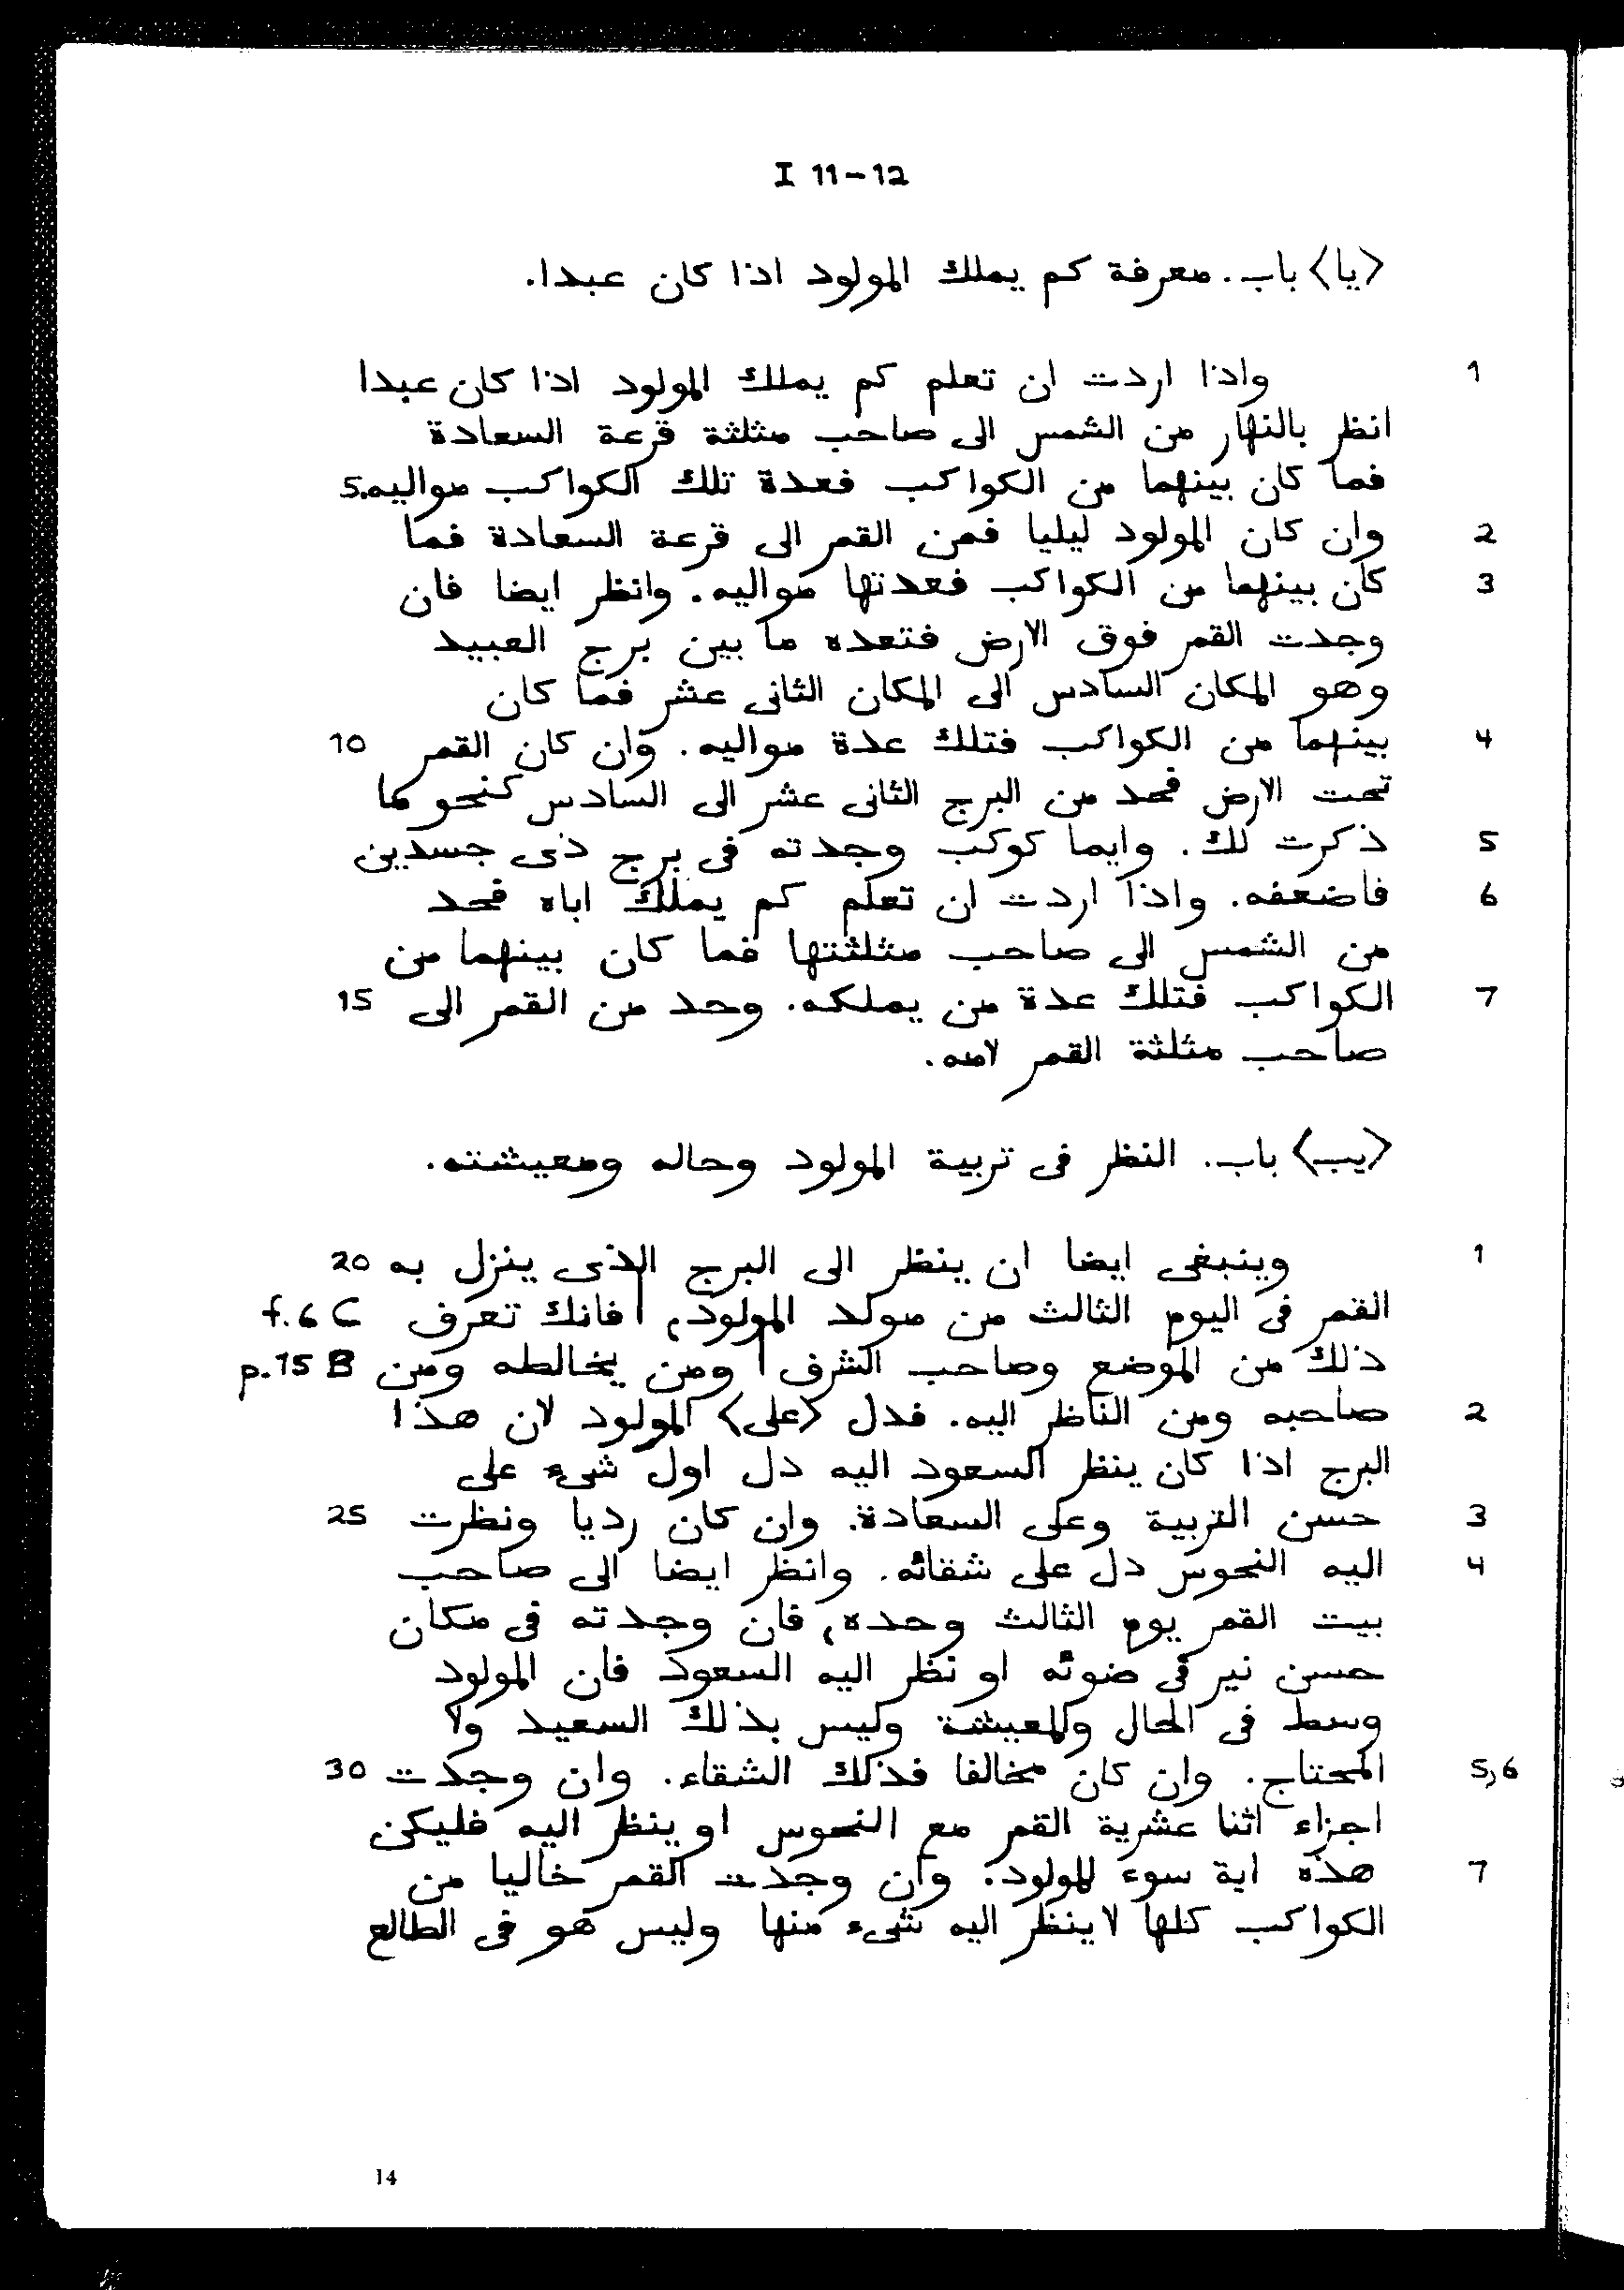 I 11-12
<يا> باب. معرفة كم يملك المولود اذا كان عبدا.
1 واذا اردت ان تعلم كم يملك المولود اذا كان عبدا
انظر بالنهار من الشمس الى صاحب مثلثة قرعة السعادة
فما كان بينهما من الكواكب فعدة تلك الكواكب مواليه. 5
2 وان كان المولود ليليا فمن القمر الى قرعة السعادة فما
3 كان بينهما من الكواكب فعدتها مواليه. وانظر ايضا فان
وجدت القمر فوق الارض فتعده ما بين برج العبيد
وهو المكان السادس الى المكان الثانى عشر فما كان
4 بينهما من الكواكب فتلك عدة مواليه. وان كان القمر 10
تحت الارض فحد من البرج الثانى عشر الى السادس كنحو ما
5 ذكرت لك. وايما كوكب وجدته فى برج ذى جسدين
6 فاضعفه. واذا اردت ان تعلم كم يملك اباه فحد
من الشمس الى صاحب مثلثتها فما كان بينهما من
7 الكواكب فتلك عدة من يملكه. وحد من القمر الى 15
صاحب مثلثة القمر لامه.
<يب> باب. النظر فى تربية المولود وحاله ومعيشته.
1 وينبغى ايضا ان ينظر الى البرج الذى ينزل به 20
القمر فى اليوم الثالث من مولد المولود، | فانك تعرف f.6 C
ذلك من الموضع وصاحب الشرف | ومن يخالطه ومن p.15 B
2 صاحبه ومن الناظر اليه. فدل <على> المولود لان هذا
البرج اذا كان ينظر السعود اليه دل اول شىء على
3 حسن التربية وعلى السعادة. وان كان رديا ونظرت 25
4 اليه النحوس دل على شقائه. وانظر ايضا الى صاحب
بيت القمر يوم الثالث وحده، فان وجدته فى مكان
حسن نير فى ضوئه او نظر اليه السعود فان المولود
وسط فى الحال والمعيشة وليس بذلك السعيد ولا
5,6 المحتاج. وان كان مخالفا فذلك الشقاء. وان وجدت 30
اجزاء اثنا عشرية القمر مع النحوس او ينظر اليه فليكن
7 هذه اية سوء للمولود. وان وجدت القمر خاليا من
الكواكب كلها لا ينظر اليه شىء منها وليس هو فى الطالع
14